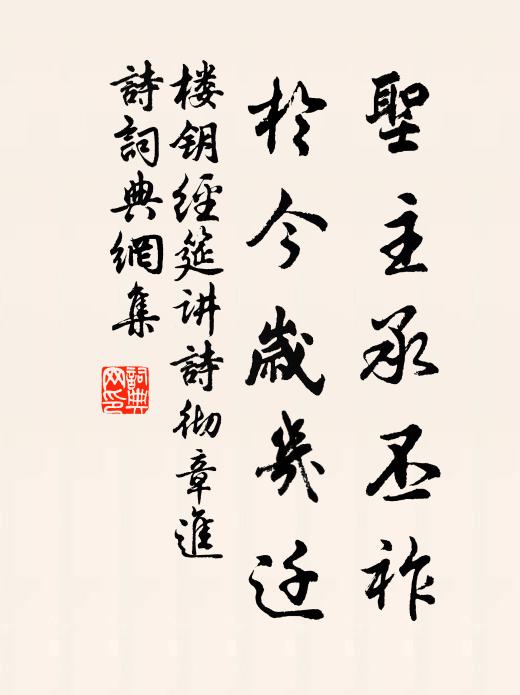 聖主承丕祚
於今歲幾迁
楼钥經筵讲詩彻章進
詩詞典網集
詞典
网印